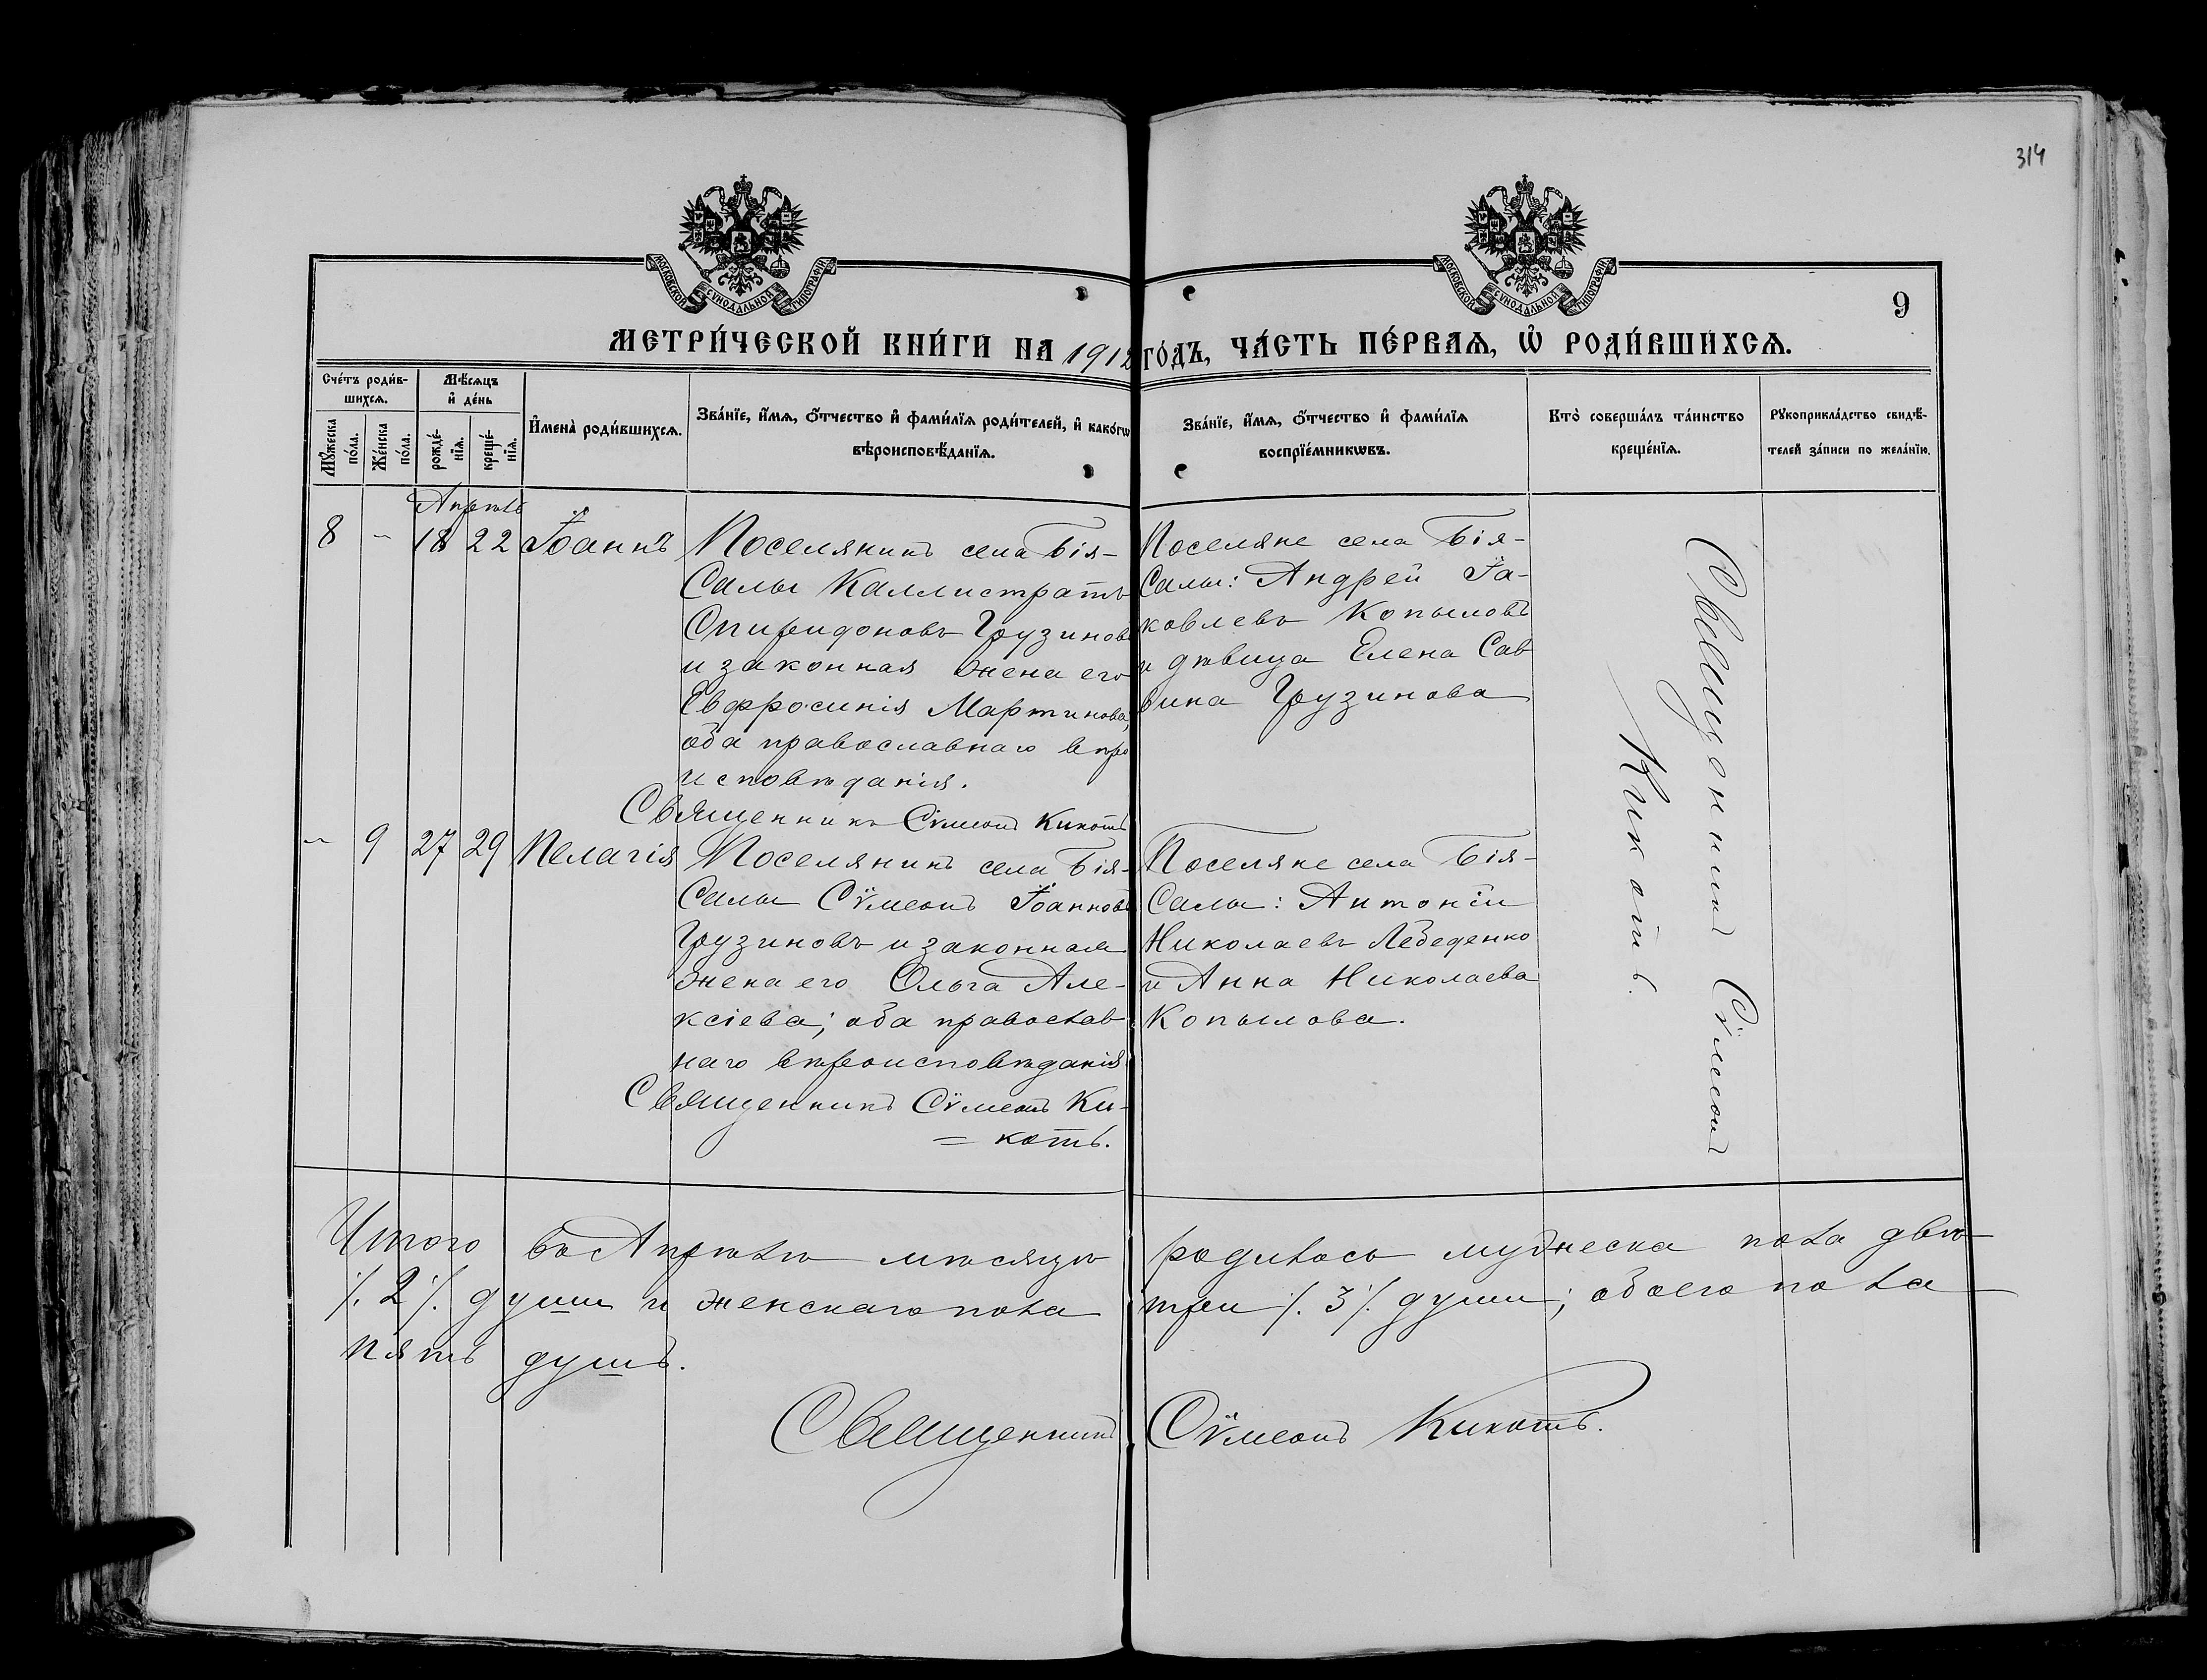 314
МОСКОВСКОЙ СѴНОДАЛЬНОЙ ТИПОГРАФІИ
МОСКОВСКОЙ СѴНОДАЛЬНОЙ ТИПОГРАФІИ
9
МЕТРИ́ЧЕСКОЙ КНИ́ГИ НА 1912 ГО́ДЪ, ЧА́СТЬ ПЕ́РВАѦ, Ѡ҆ РОДИ́ВШИХСѦ.
Сче́тъ роди́в-
шихсѧ.
Мꙋ́жеска
по́ла.
Же́нска
по́ла.
Мѣ́сѧцъ
и҆ де́нь
рожде́-
нїѧ.
креще́-
нїѧ.
И҆мена̀ роди́вшихсѧ.
Зва́нїе, и҆́мѧ, ѻ҆́тчество и҆ фами́лїѧ роди́телей, и҆ како́гѡ
вѣроисповѣ́данїѧ.
Зва́нїе, и҆́мѧ, ѻ҆́тчество и҆ фами́лїѧ
воспрїе́мникѡвъ.
Кто̀ соверша́лъ та́инство
креще́нїѧ.
Рꙋкоприкла́дство свидѣ́-
телей за́писи по жела́нїю.
Апрѣль
8 – 18 22 Іоаннъ
Поселянинъ села Бія-
Салы Каллистратъ
Спиридоновъ Грузиновъ
и законная жена его
Евфросинія Мартинова,
оба православнаго вѣро
исповѣданія.
Священникъ Сѵмеонъ Кикоть
Поселяне села Бія-
Салы: Андрей Іа-
ковлевъ Копыловъ
и дѣвица Елена Сав
вина Грузинова
Священникъ Сѵмеонъ
Кикоть.
– 9 27 29 Пелагія
Поселянинъ села Бія-
Салы Сѵмеонъ Іоанновъ
Грузиновъ и законная
жена его Ольга Але-
ксіева; оба православ
наго вѣроисповѣданія
Священникъ Сѵмеонъ Ки-
= коть.
Поселяне села Бія-
Салы: Антоній
Николаевъ Лебеденко
и Анна Николаева
Копылова.
Итого въ Апрѣлѣ мѣсяцѣ родилось мужеска пола двѣ
/. 2 /. души и женскаго пола три /. 3 /. души; обоего пола
пять душъ.
Священникъ Сѵмеонъ Кикоть.